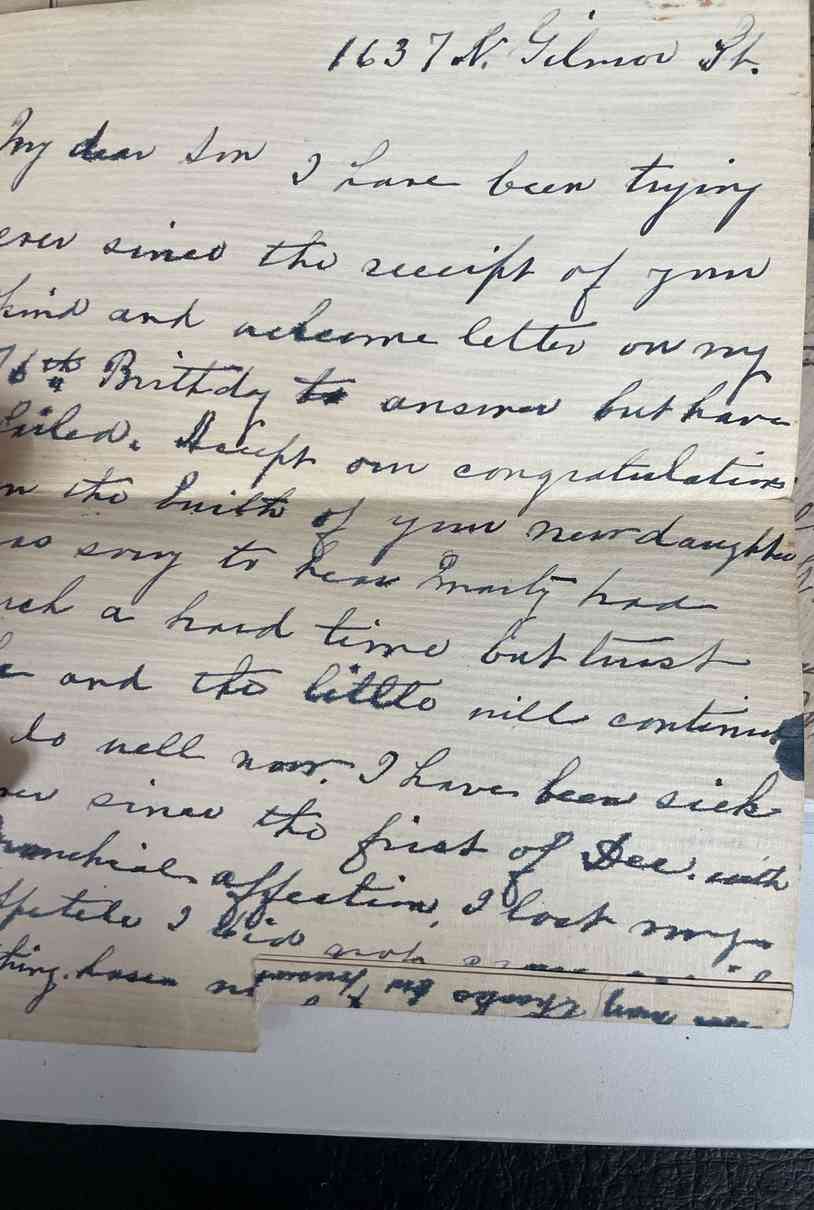 1637 N. Gilmor St.
My dear son I have been trying
ever since the receipt of your
kind and welcome letter on my
76th Birthday to answer but have
failed. Accept our congratulations
on the birth of your new daughter
as sorry to hear Marty had
uch a hard time but trust
and the little will continue
to well now. I have been sick
ever since the first of Dec. with
Bronchial affection, I lost my
I did not
thing. have
many thanks for